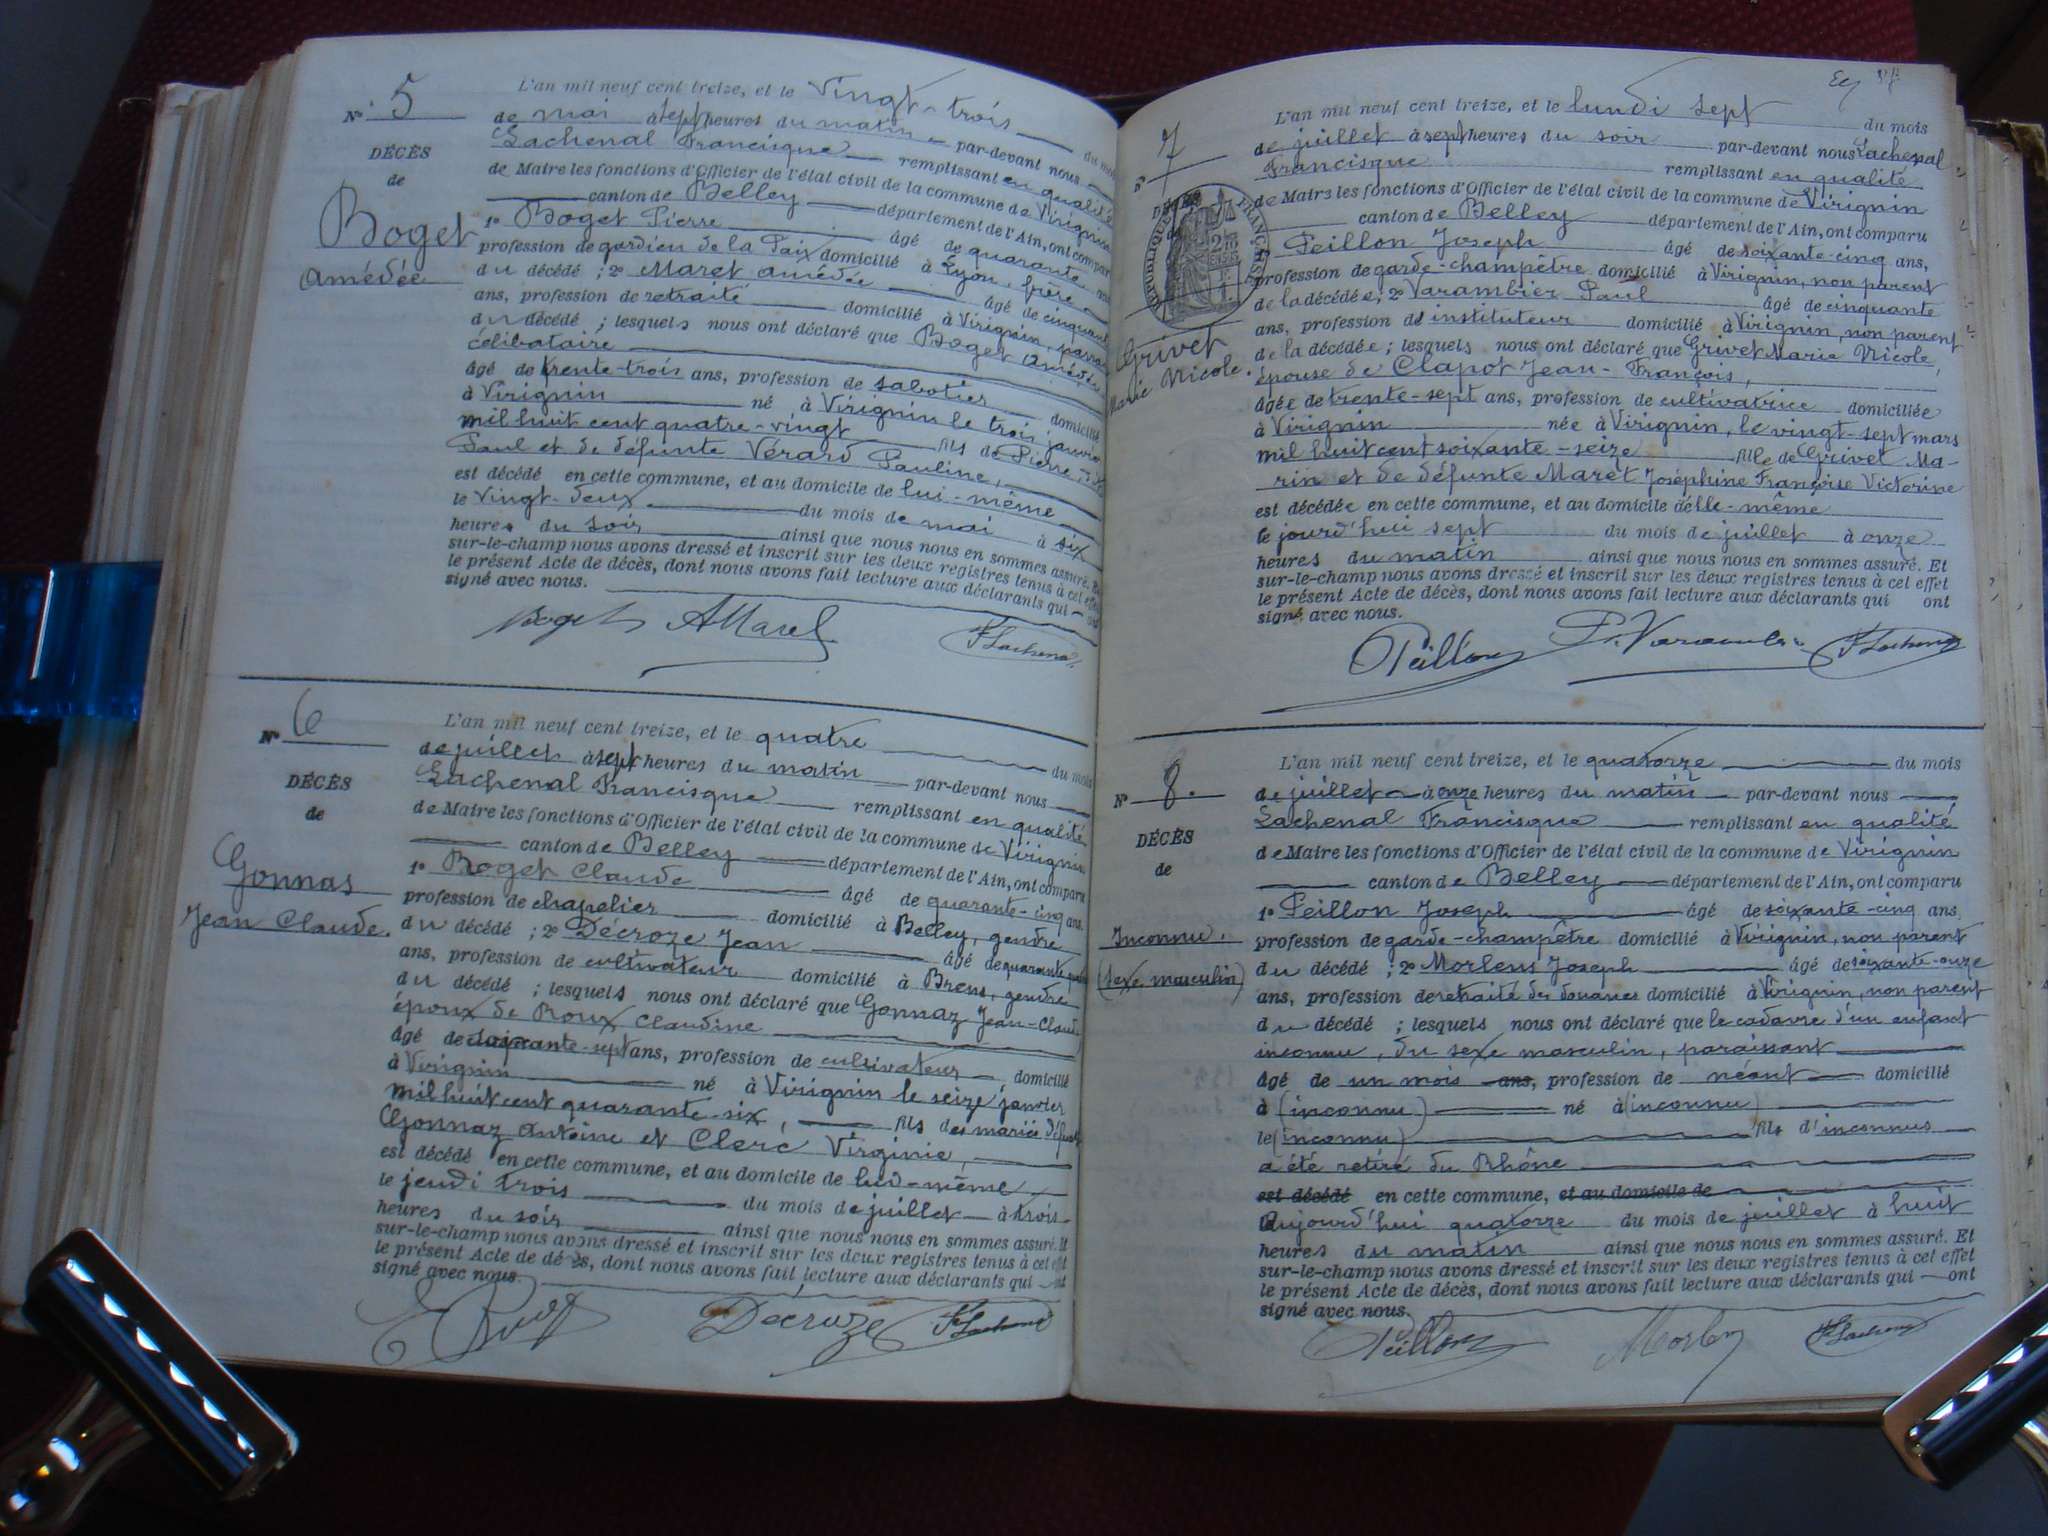 Nº 5
DÉCÈS
de
Boget
Amédée
L'an mil neuf cent treize, et le vingt-trois du mois
de mai à sept heures du matin par-devant nous
Lachenal Francisque remplissant en qualité
de Maire les fonctions d'Officier de l'état civil de la commune de Virignin
canton de Belley département de l'Ain, ont comparu
1º Boget Pierre âgé de quarante ans
profession de gardien de la Paix domicilié à Lyon, frère
du décédé ; 2º Maret Amédée âgé de cinquante
ans, profession de retraité domicilié à Virignin,
du décédé ; lesquels nous ont déclaré que Boget Amédée
célibataire
âgé de trente-trois ans, profession de sabotier domicilié
à Virignin né à Virignin le trois janvier
mil huit cent quatre-vingt fils de Pierre
Paul et de défunte Vérard Pauline,
est décédé en cette commune, et au domicile de lui-même
le vingt-deux du mois de mai à six
heures du soir ainsi que nous nous en sommes assuré. Et
sur-le-champ nous avons dressé et inscrit sur les deux registres tenus à cet effet
le présent Acte de décès, dont nous avons fait lecture aux déclarants qui ont
signé avec nous.
Boget AMaret F Lachenal
Nº 6
DÉCÈS
de
Gonnas
Jean Claude.
L'an mil neuf cent treize, et le quatre du mois
de juillet à sept heures du matin par-devant nous
Lachenal Francisque remplissant en qualité
de Maire les fonctions d'Officier de l'état civil de la commune de Virignin
canton de Belley département de l'Ain, ont comparu
1º Roget Claude âgé de quarante-cinq ans.
profession de chapelier domicilié à Belley, gendre
du décédé ; 2º Décroze Jean âgé de quarante
ans, profession de cultivateur domicilié à Brens, gendre
du décédé ; lesquels nous ont déclaré que Gonnaz Jean-Claude
époux de Roux Claudine
âgé de soixante-sept ans, profession de cultivateur domicilié
à Virignin né à Virignin le seize janvier
mil huit cent quarante-six, fils des mariés défunts
Gonnaz Antoine et Clerc Virginie,
est décédé en cette commune, et au domicile de lui-même
le jeudi trois du mois de juillet à trois
heures du soir ainsi que nous nous en sommes assuré. Et
sur-le-champ nous avons dressé et inscrit sur les deux registres tenus à cet effet
le présent Acte de décès, dont nous avons fait lecture aux déclarants qui ont
signé avec nous.
Décroze F Lachenal
Nº 7
DÉCÈS
de
RÉPUBLIQUE FRANÇAISE
Grivet
Marie Nicole.
L'an mil neuf cent treize, et le lundi sept du mois
de juillet à sept heures du soir par-devant nous Lachenal
Francisque remplissant en qualité
de Maire les fonctions d'Officier de l'état civil de la commune de Virignin
canton de Belley département de l'Ain, ont comparu
Peillon Joseph âgé de soixante-cinq ans,
profession de garde-champêtre domicilié à Virignin, non parent
de la décédée ; 2º Varambier Paul âgé de cinquante
ans, profession de instituteur domicilié à Virignin, non parent
de la décédée ; lesquels nous ont déclaré que Grivet Marie Nicole,
épouse de Clapot Jean-François,
âgée de trente-sept ans, profession de cultivatrice domiciliée
à Virignin née à Virignin, le vingt-sept mars
mil huit cent soixante-seize fille de Grivet Ma-
rin et de défunte Maret Joséphine Françoise Victorine
est décédée en cette commune, et au domicile d'elle-même
le jourd'hui sept du mois de juillet à onze
heures du matin ainsi que nous nous en sommes assuré. Et
sur-le-champ nous avons dressé et inscrit sur les deux registres tenus à cet effet
le présent Acte de décès, dont nous avons fait lecture aux déclarants qui ont
signé avec nous.
Peillon P. Varambier F Lachenal
Nº 8.
DÉCÈS
de
Inconnu.
(sexe masculin)
L'an mil neuf cent treize, et le quatorze du mois
de juillet à onze heures du matin par-devant nous
Lachenal Francisque remplissant en qualité
de Maire les fonctions d'Officier de l'état civil de la commune de Virignin
canton de Belley département de l'Ain, ont comparu
1º Peillon Joseph âgé de soixante-cinq ans,
profession de garde-champêtre domicilié à Virignin, non parent
du décédé ; 2º Morlens Joseph âgé de soixante-onze
ans, profession de retraité des douanes domicilié à Virignin, non parent
du décédé ; lesquels nous ont déclaré que le cadavre d'un enfant
inconnu, du sexe masculin, paraissant
âgé de un mois ans, profession de néant domicilié
à (inconnu) né à (inconnu)
le (inconnu) fils d'inconnus
a été retiré du Rhône
est décédé en cette commune, et au domicile de
aujourd'hui quatorze du mois de juillet à huit
heures du matin ainsi que nous nous en sommes assuré. Et
sur-le-champ nous avons dressé et inscrit sur les deux registres tenus à cet effet
le présent Acte de décès, dont nous avons fait lecture aux déclarants qui ont
signé avec nous.
Peillon Morlens F Lachenal